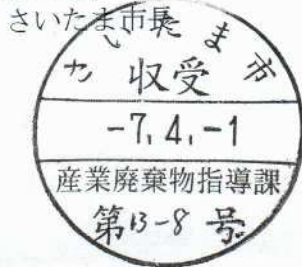 さいたま市長
さいたま市
収受
-7.4.-1
産業廃棄物指導課
第13-8号